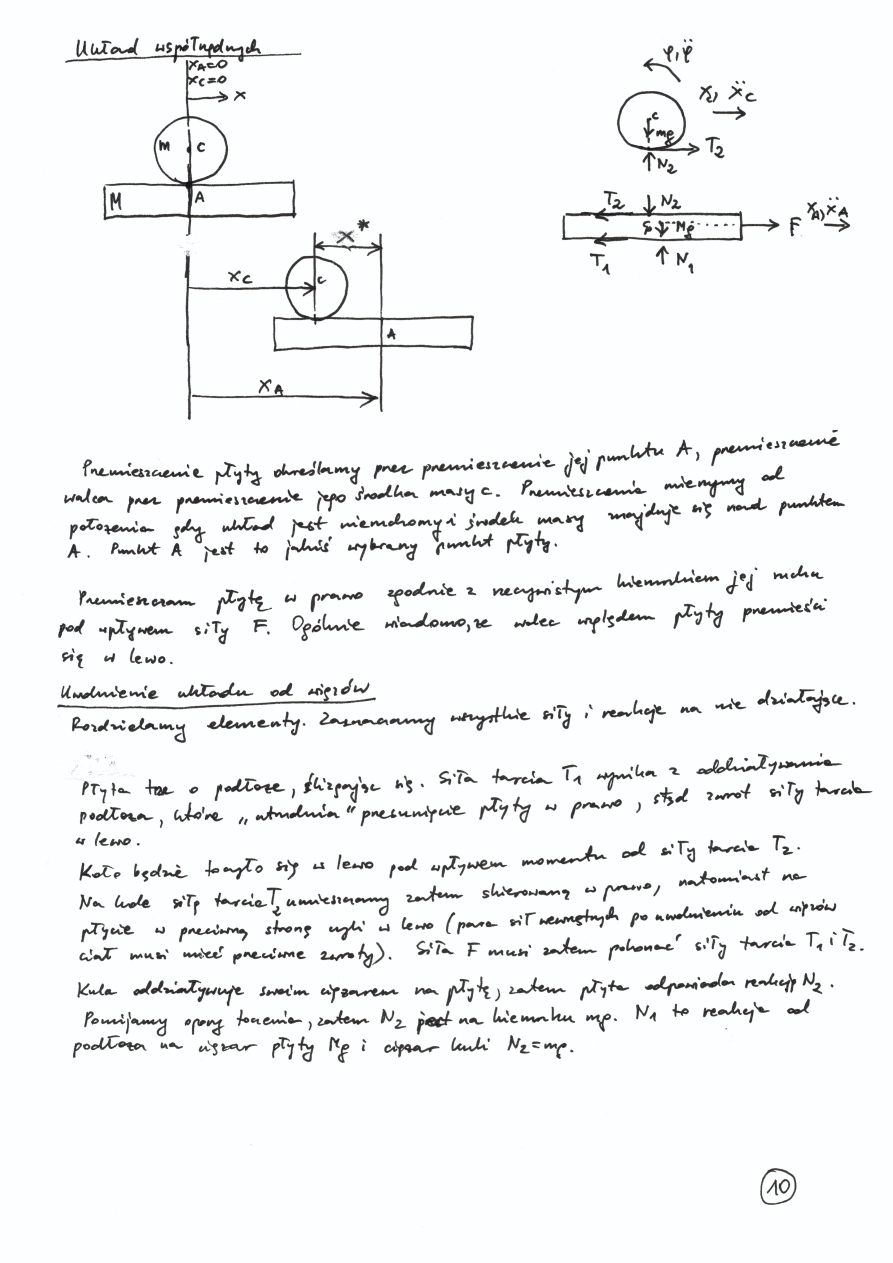 Układ współrzędnych
xA=0
xC=0
x
m C
M A
x*
xC
C
A
xA
φ,φ̈
xC, ẍC
C
mg
T2
N2
T2 N2
S Mg F xA, ẍA
T1 N1
Przemieszczenie płyty określamy przez przemieszczenie jej punktu A, przemieszczenie
walca przez przemieszczenie jego środka masy C. Przemieszczenia mierzymy od
położenia gdy układ jest nieruchomy i środek masy znajduje się nad punktem
A. Punkt A jest to jakiś wybrany punkt płyty.
Przemieszczam płytę w prawo zgodnie z rzeczywistym kierunkiem jej ruchu
pod wpływem siły F. Ogólnie wiadomo, że walec względem płyty przemieści
się w lewo.
Uwolnienie układu od więzów
Rozdzielamy elementy. Zaznaczamy wszystkie siły i reakcje na nie działające.
Płyta trze o podłoże, ślizgając się. Siła tarcia T1 wynika z oddziaływania
podłoża, które „utrudnia" przesunięcie płyty w prawo, stąd zwrot siły tarcia
w lewo.
Koło będzie toczyło się w lewo pod wpływem momentu od siły tarcia T2.
Na kole siłę tarcia T2 umieszczamy zatem skierowaną w prawo, natomiast na
płycie w przeciwną stronę czyli w lewo (para sił wewnętrznych po uwolnieniu od więzów
ciał musi mieć przeciwne zwroty). Siła F musi zatem pokonać siły tarcia T1 i T2.
Kula oddziaływuje swoim ciężarem na płytę, zatem płyta odpowiada reakcją N2.
Pomijamy opory toczenia, zatem N2 jest na kierunku mg. N1 to reakcja od
podłoża na ciężar płyty Mg i ciężar kuli N2=mg.
10